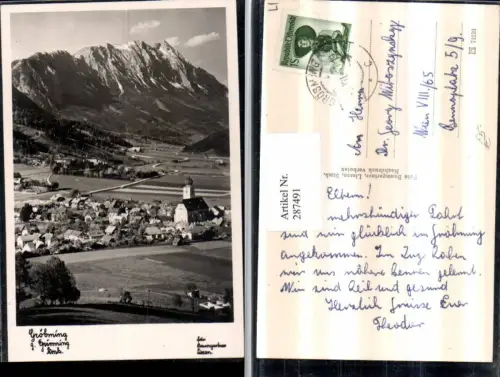 Gröbming
g. Grimming
Stmk.
Foto
Baumgartner
Liezen.
LI
GRÖBMING
Artikel Nr.
287491
Foto Baumgartner, Liezen, Stmk.
Nachdruck verboten
An Herrn
Dr. Georg
Wien VIII/65
Bennoplatz 5/9.
Eltern!
mehrstündiger Fahrt
sind wir glücklich in Gröbming
angekommen. Im Zug haben
wir uns näher kennen gelernt.
Wir sind heil und gesund
Herzlich Grüsse Euer
Theodor